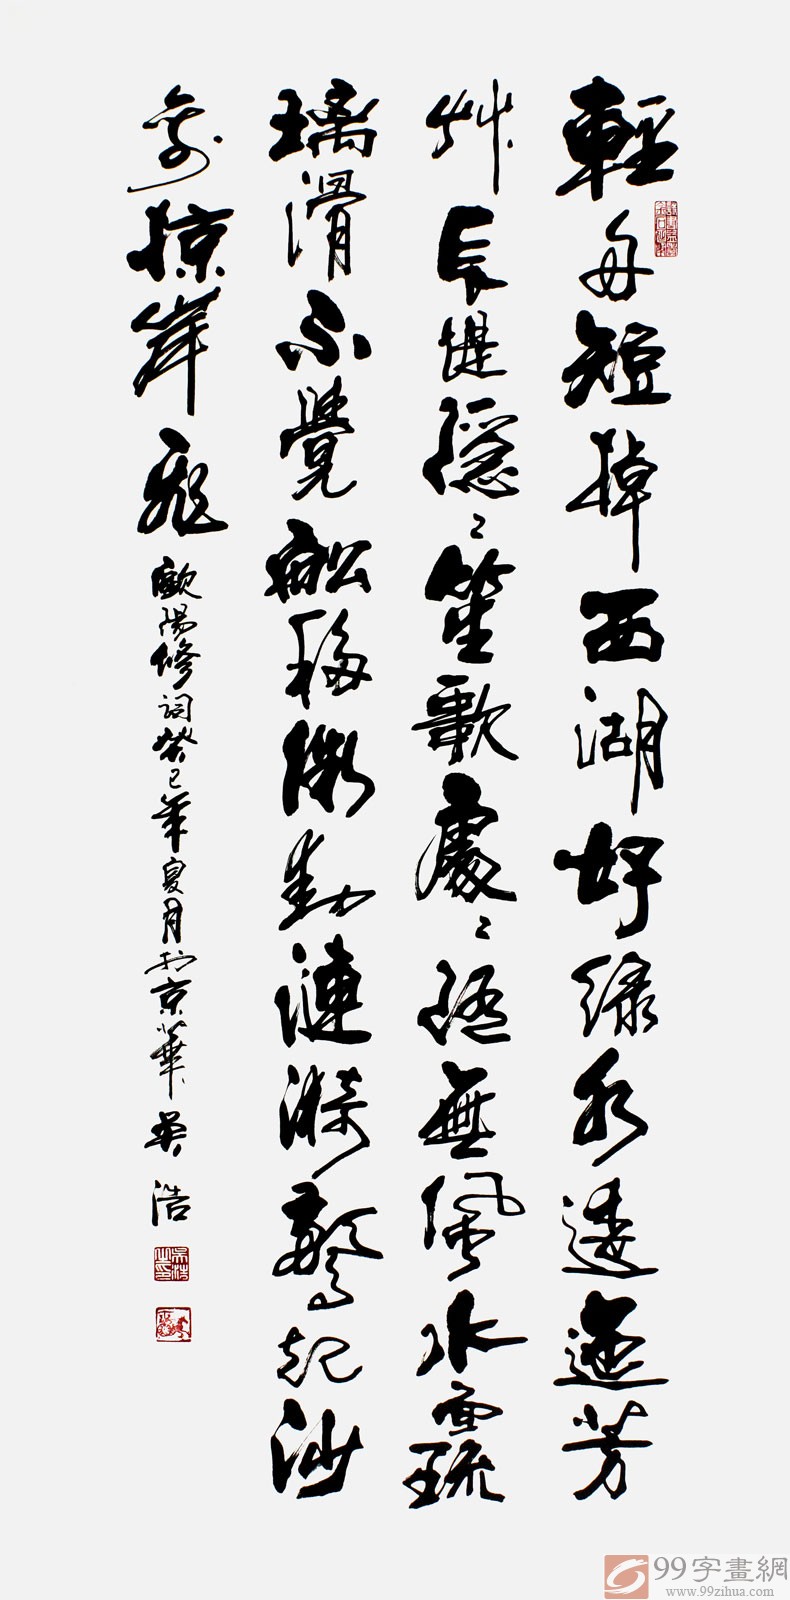 輕舟短棹西湖好緑水逶迤芳
艸長堤隱〻笙歌處〻隨無風水面琉
璃滑不覺舩移微動漣漪驚起沙
禽掠岸飛
歐陽修詞癸巳年夏月於京華吳浩
99字畫網
www.99zihua.com